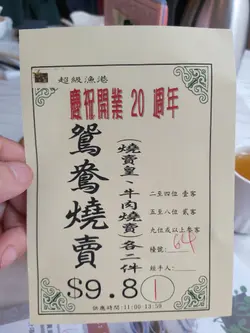 超級漁港
慶祝開業 20 週年
鴛鴦燒賣
(燒賣皇、牛肉燒賣各二件)
二至四位 壹客
五至八位 貳客
九位或以上叁客
檯號: 64
經手人:
$9.8
1
供應時間:11:00-13:58